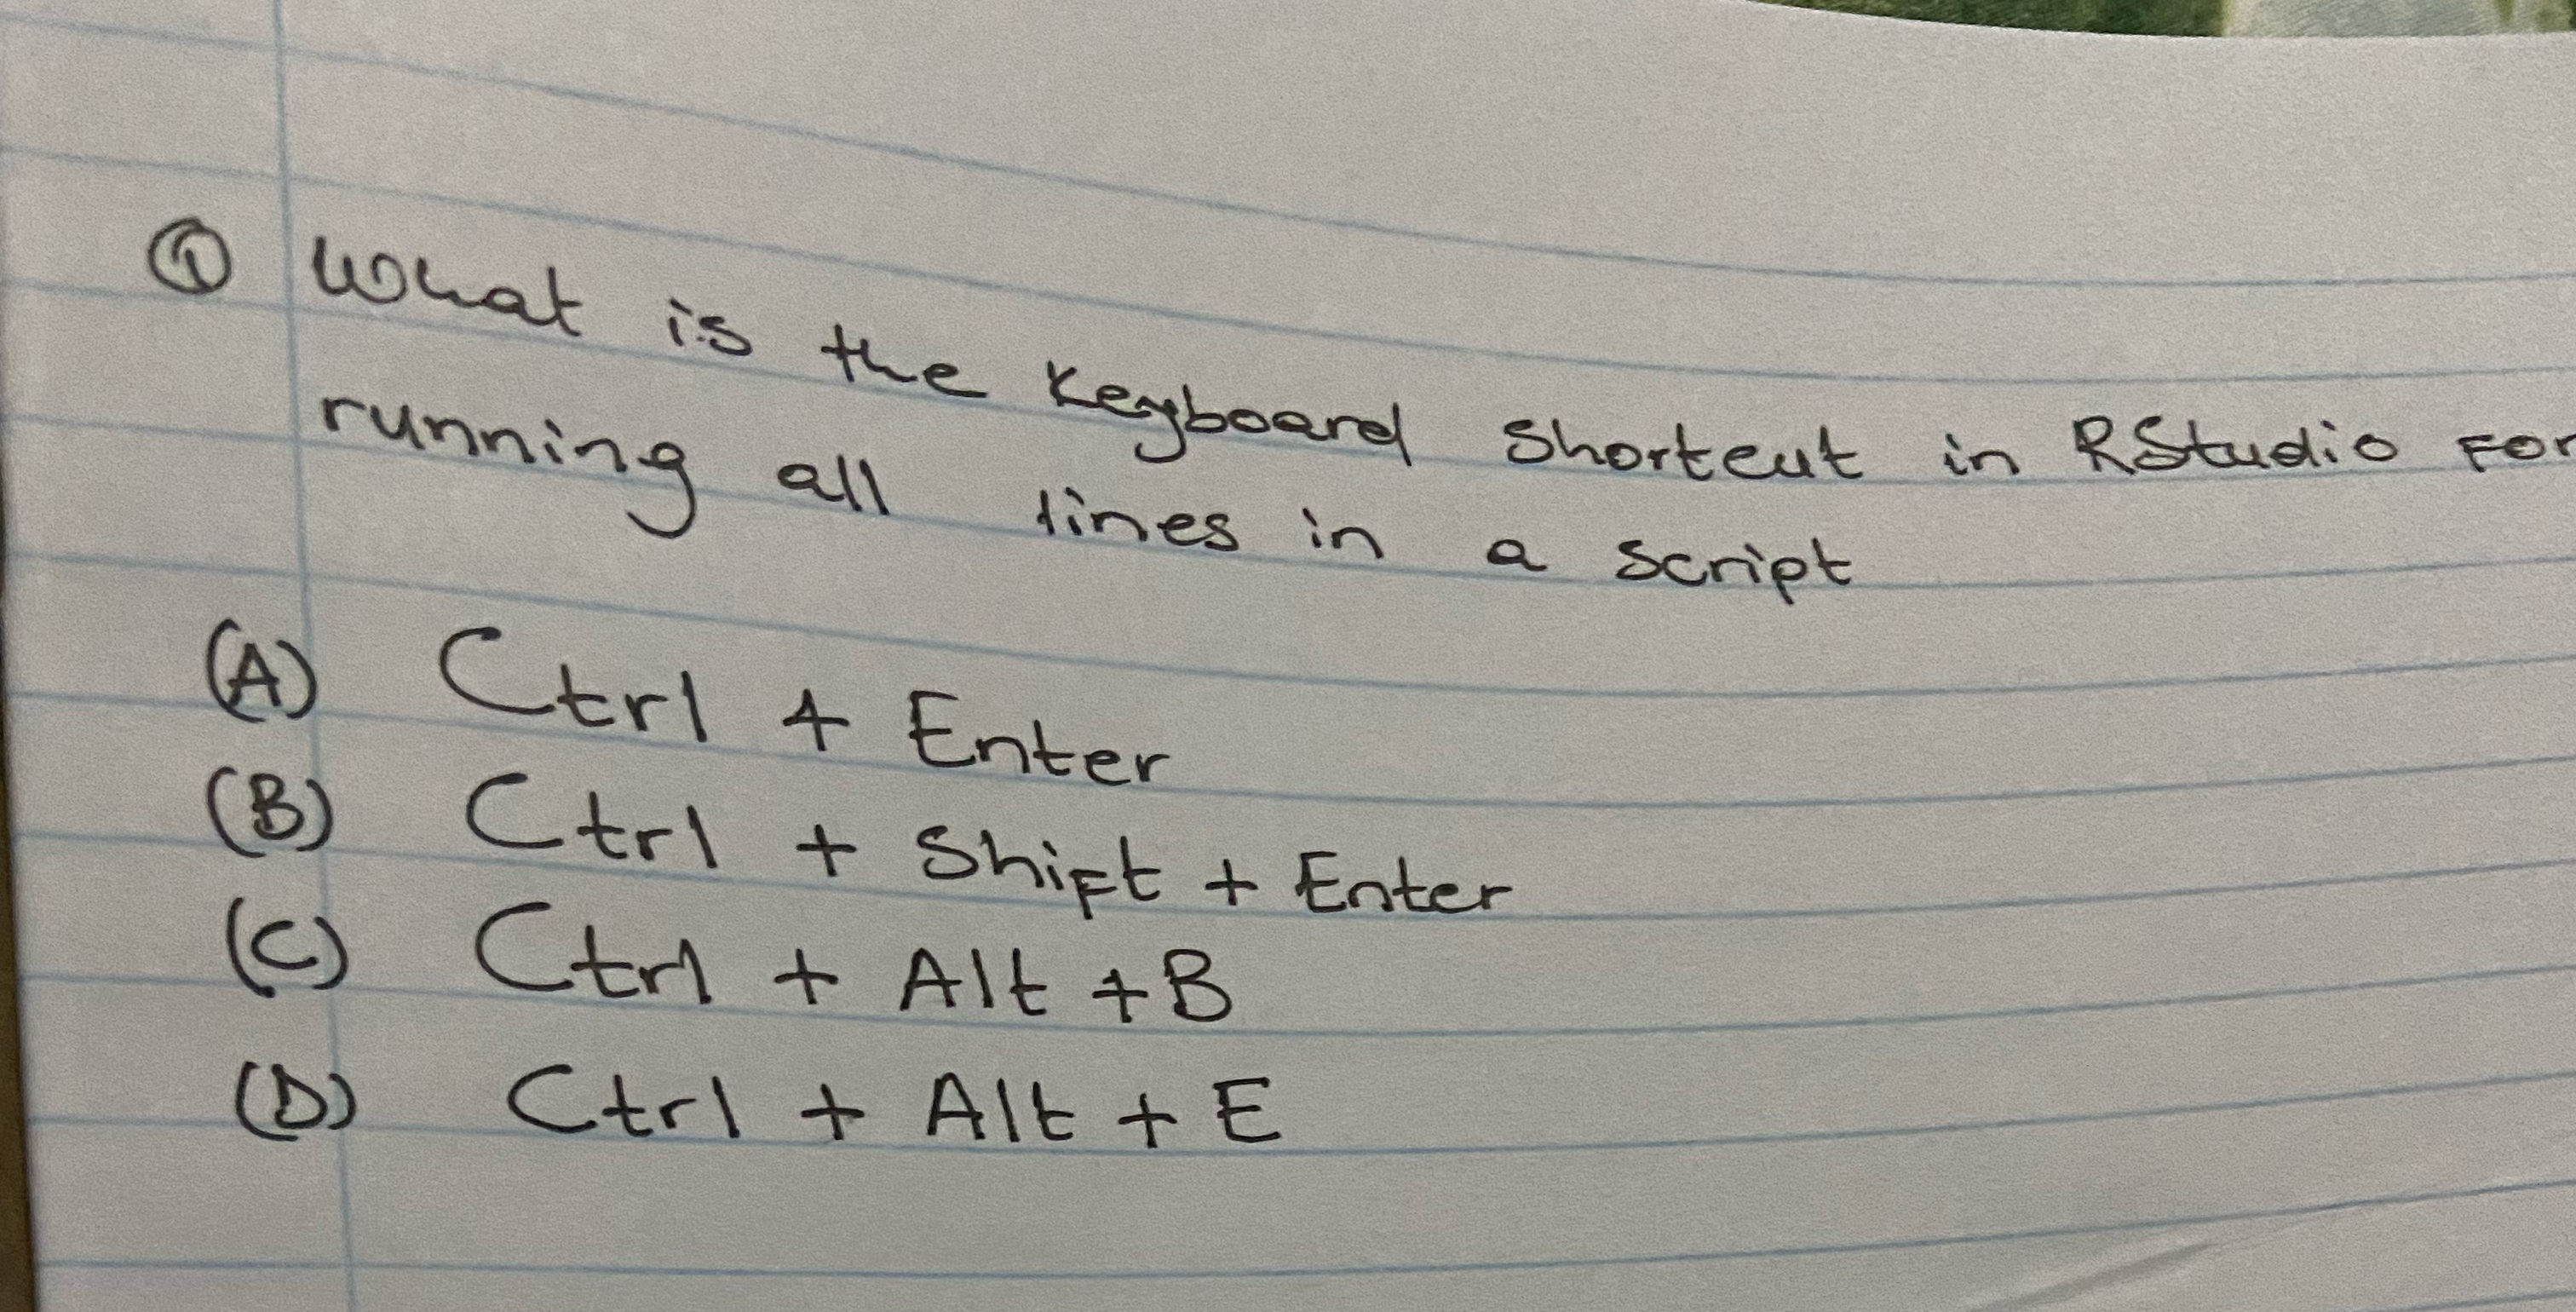 ① What is the keyboard shortcut in RStudio for
running all lines in a script
(A) Ctrl + Enter
(B) Ctrl + Shift + Enter
(C) Ctrl + Alt + B
(D) Ctrl + Alt + E